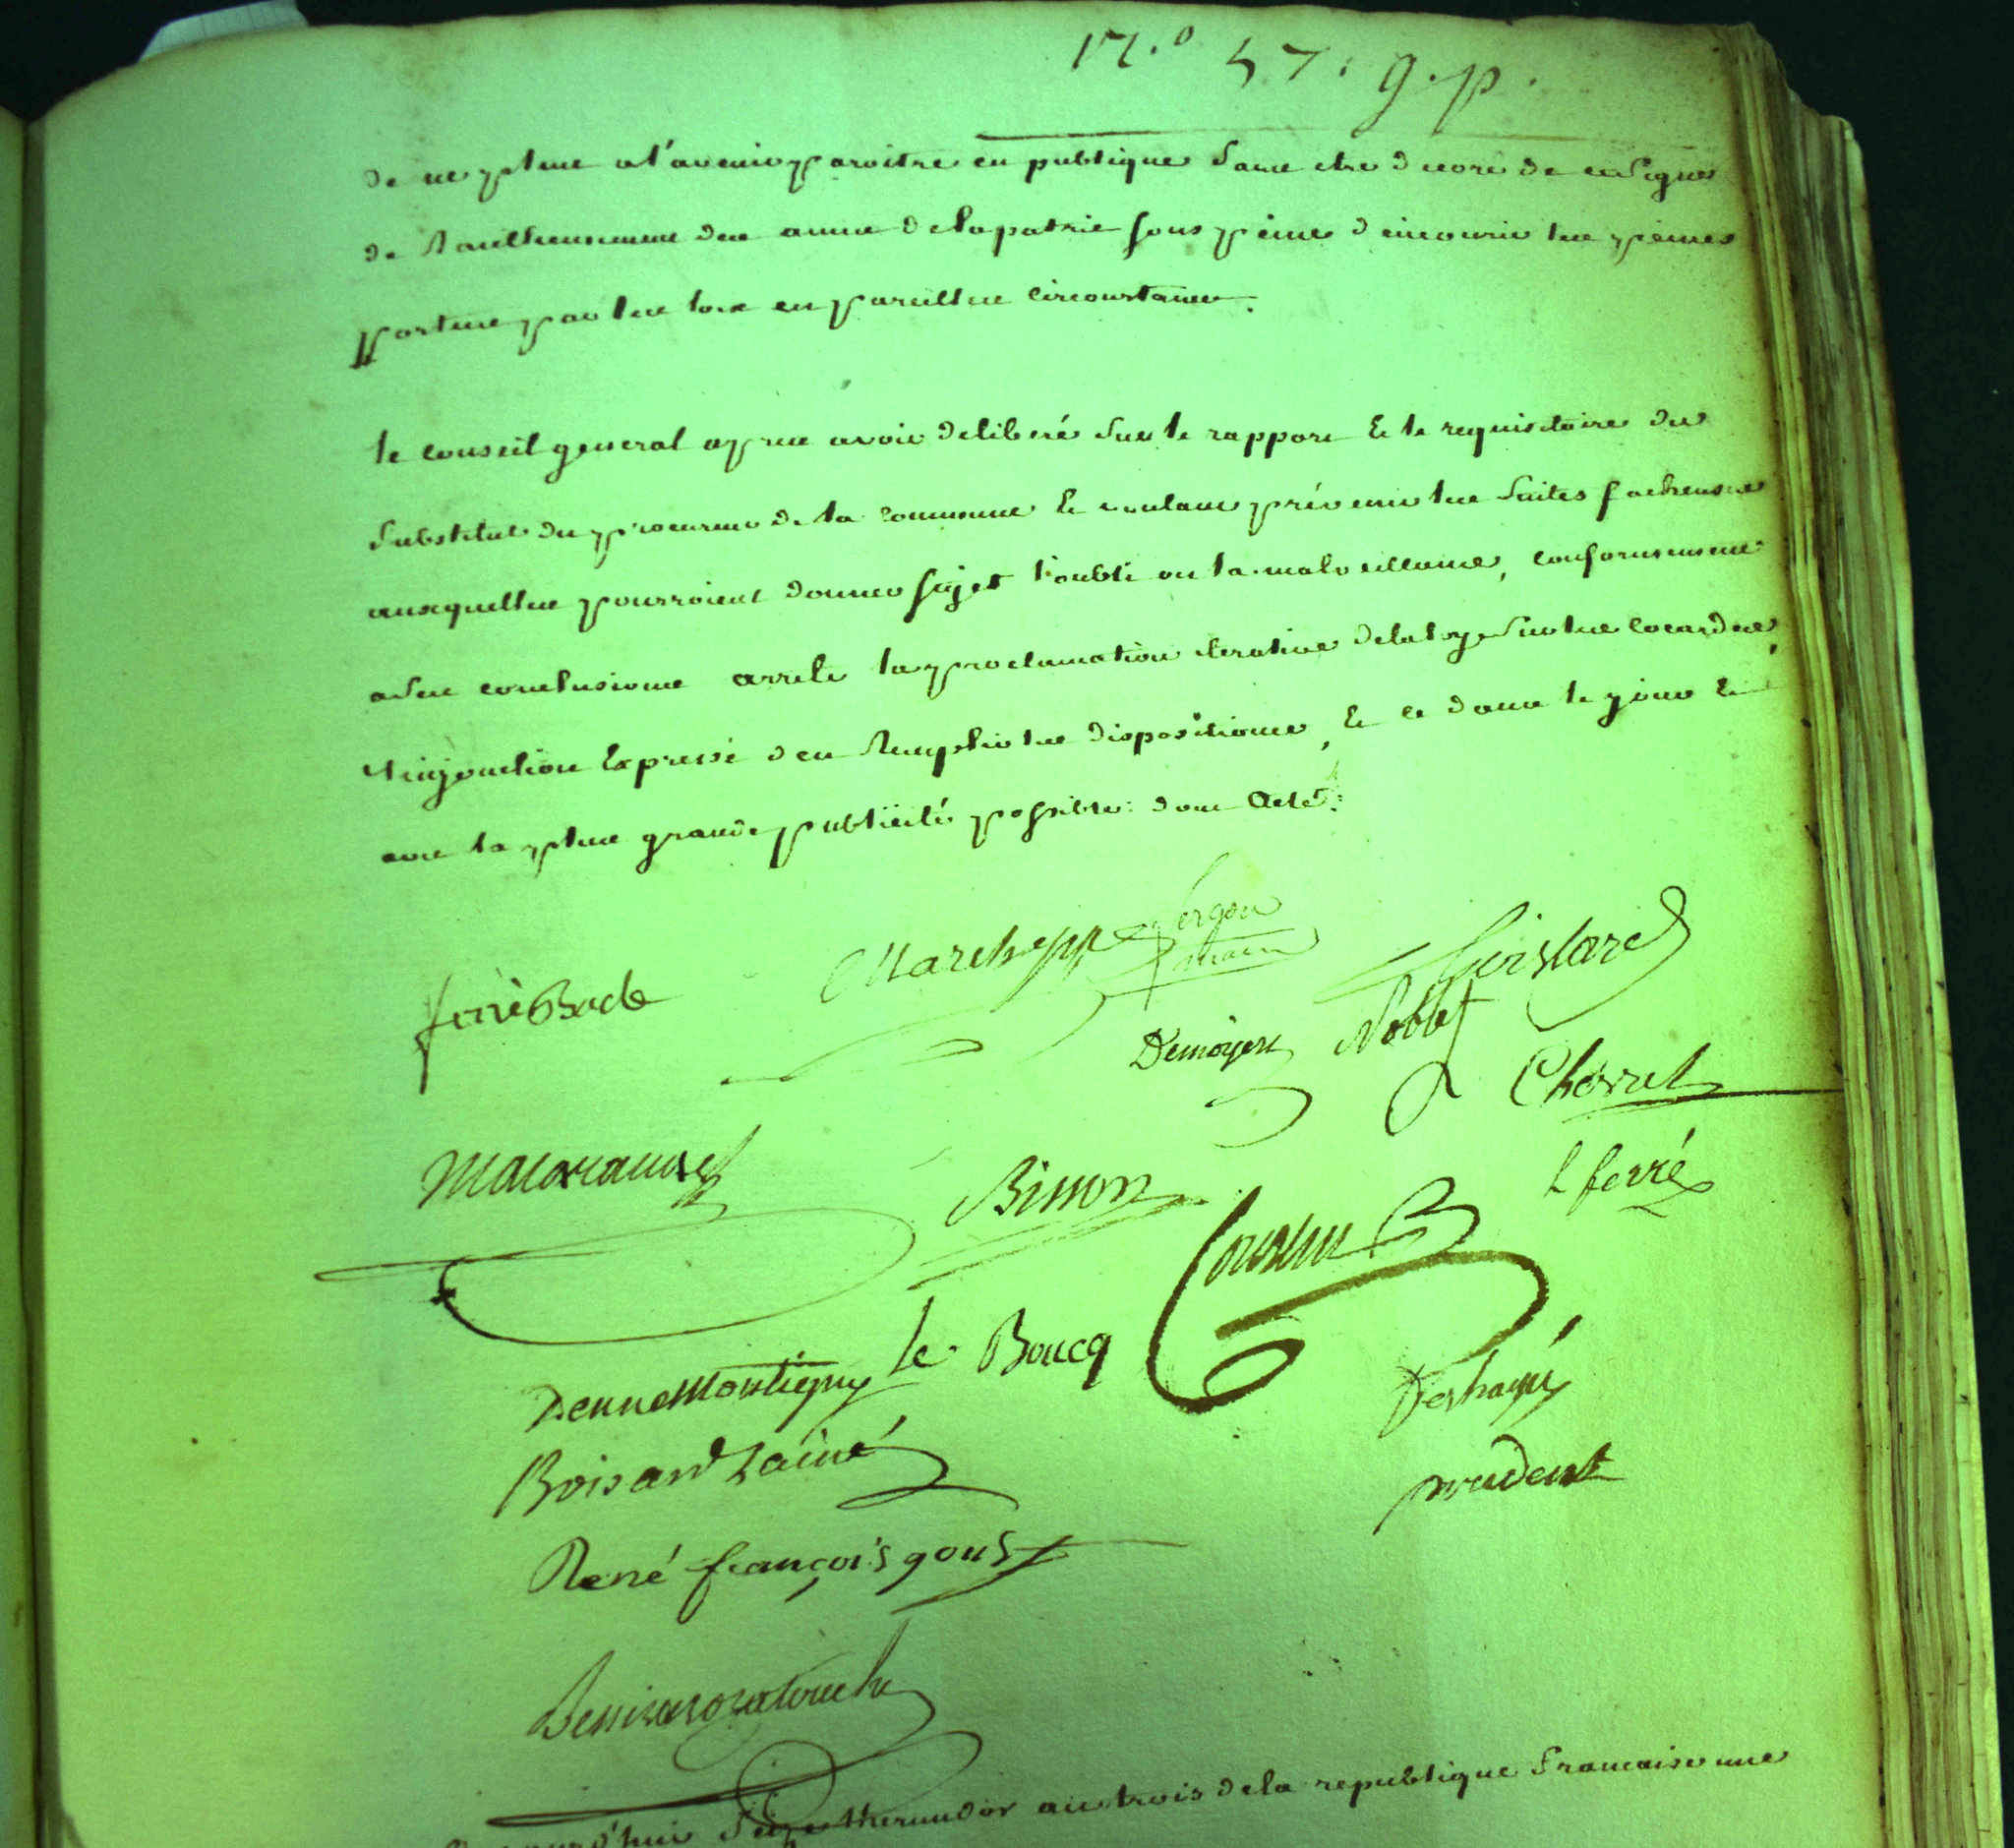 N.o 57. g. p.
de ne plus a l'avenir paroitre en publique sans etre decoré de ce signes
de Raillement des amis de la patrie sous peine d'encourir les peines
portees par les loix en pareilles circonstances.
le conseil general apres avoir deliberé sur le rapport & le requisitoire du
substitut du procureur de la commune & voulant prévenir les suites facheuses
auxquelles pourroient donner sujet l'oubli ou la malveillance, conformement
a ses conclusions arrete la proclamation iterative de la loy sur les cocardes,
injonction Expresse d'en Remplir les dispositions, & ce dans le jour &
avec la plus grande publicité possible: dont Acte.
Marchapp Fergon
maire
ferré Bade
Guislard
Demoyers Noblet
Chorel
Bisson
L ferré
Cousin
le Boucq
Denne Montigny
Deshayes
Boisard L'ainé
prudent
René françois goust
Denis
aujourd'hui Seize thermidor an trois de la republique francaise une